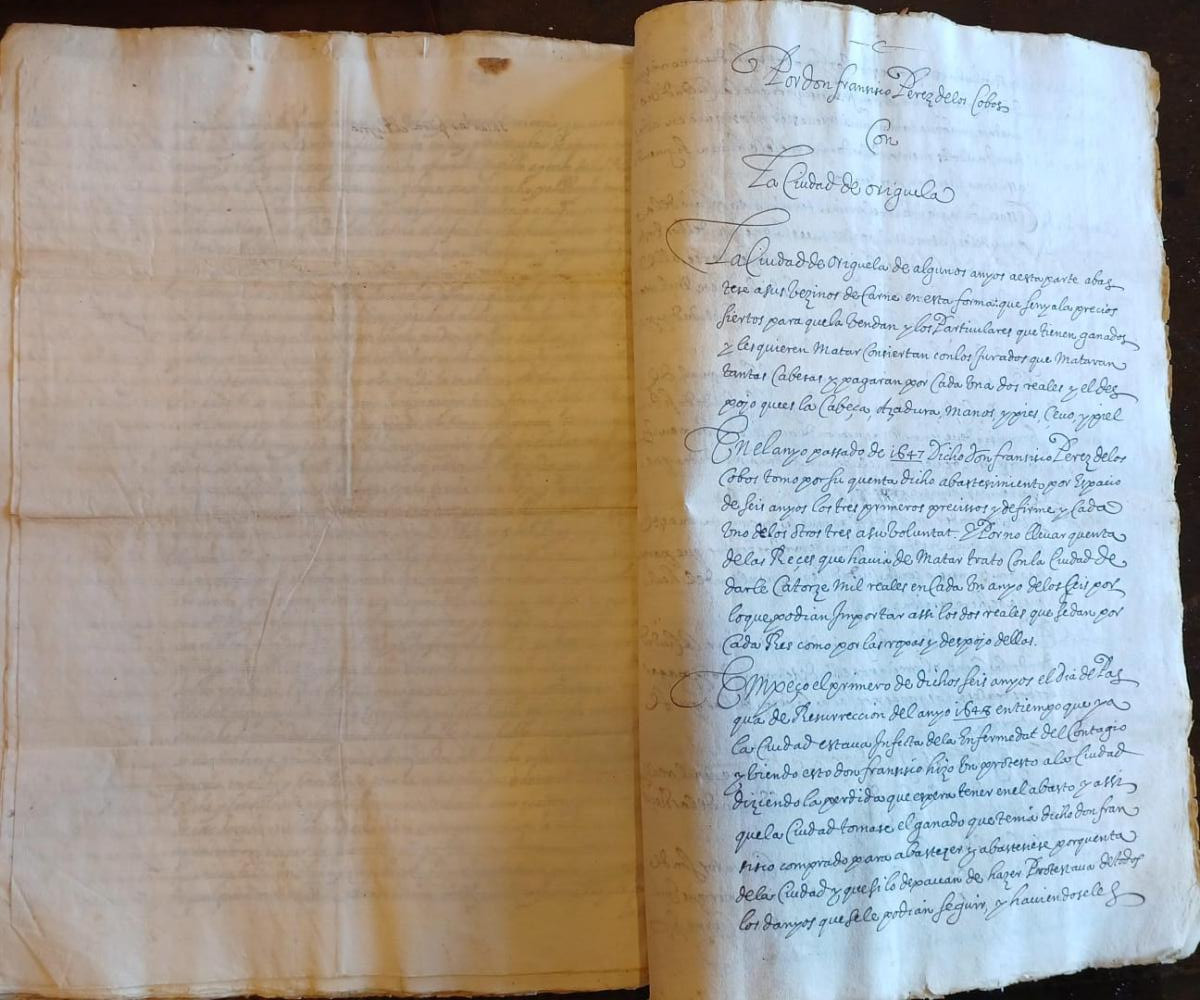 Por don fransisco Perez delos Cobos
Con
La Ciudad de origuela
La Ciudad de origuela de algunos anyos aesta parte abas
tese a sus vezinos de Carne en esta forma: que senyala precios
siertos para que la vendan y los Particulares que tienen ganados
y les quieren Matar Consiertan con los Jurados que Mataran
tantas Cabesas y pagaran por Cada una dos reales y el des
pojo que es la Cabeça, Asadura, Manos, y pies, Cevo, y piel
En el anyo passado de 1647 Dicho Don fransisco Perez de los
Cobos tomo por su quenta dicho abastesimiento por Espacio
de seis anyos los tres primeros precissos y de firme y Cada
Uno de los otros tres a su voluntat. Y Por no llevar quenta
de las Reces que havia de Matar trato Con la Ciudad de
darle Catorze Mil reales en Cada Un anyo de los seis por
lo que podian Importar assi los dos reales que se dan por
Cada Res como por las ropas y despojo dellas.
Empeço el primero de dichos seis anyos el dia de Pas
qua de Resurreccion del anyo 1648 en tiempo que ya
la Ciudad estava Infecta de la Enfermedat del Contagio
y viendo esto don fransisco hizo Un protesto a la Ciudad
diziendo la perdida que espera tener en el abasto y assi
que la Ciudad tomase el ganado que tenia dicho don fran
sisco comprado para abastezer y abastesiese por quenta
de la Ciudad y que si lo dexavan de hazer Protestava de todos
los danyos que se le podian seguir, y haviendosele